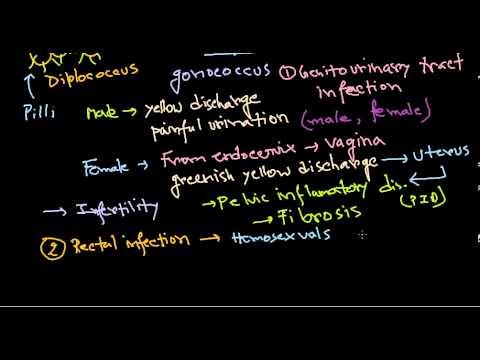 Diplococcus gonococcus ① Genitourinary tract
Pilli infection
Male → yellow discharge (male, female)
painful urination
Female → From endocervix → vagina
greenish yellow discharge → uterus
→ Infertility → Pelvic inflamatory dis. (PID)
→ Fibrosis
② Rectal infection → Homosexuals